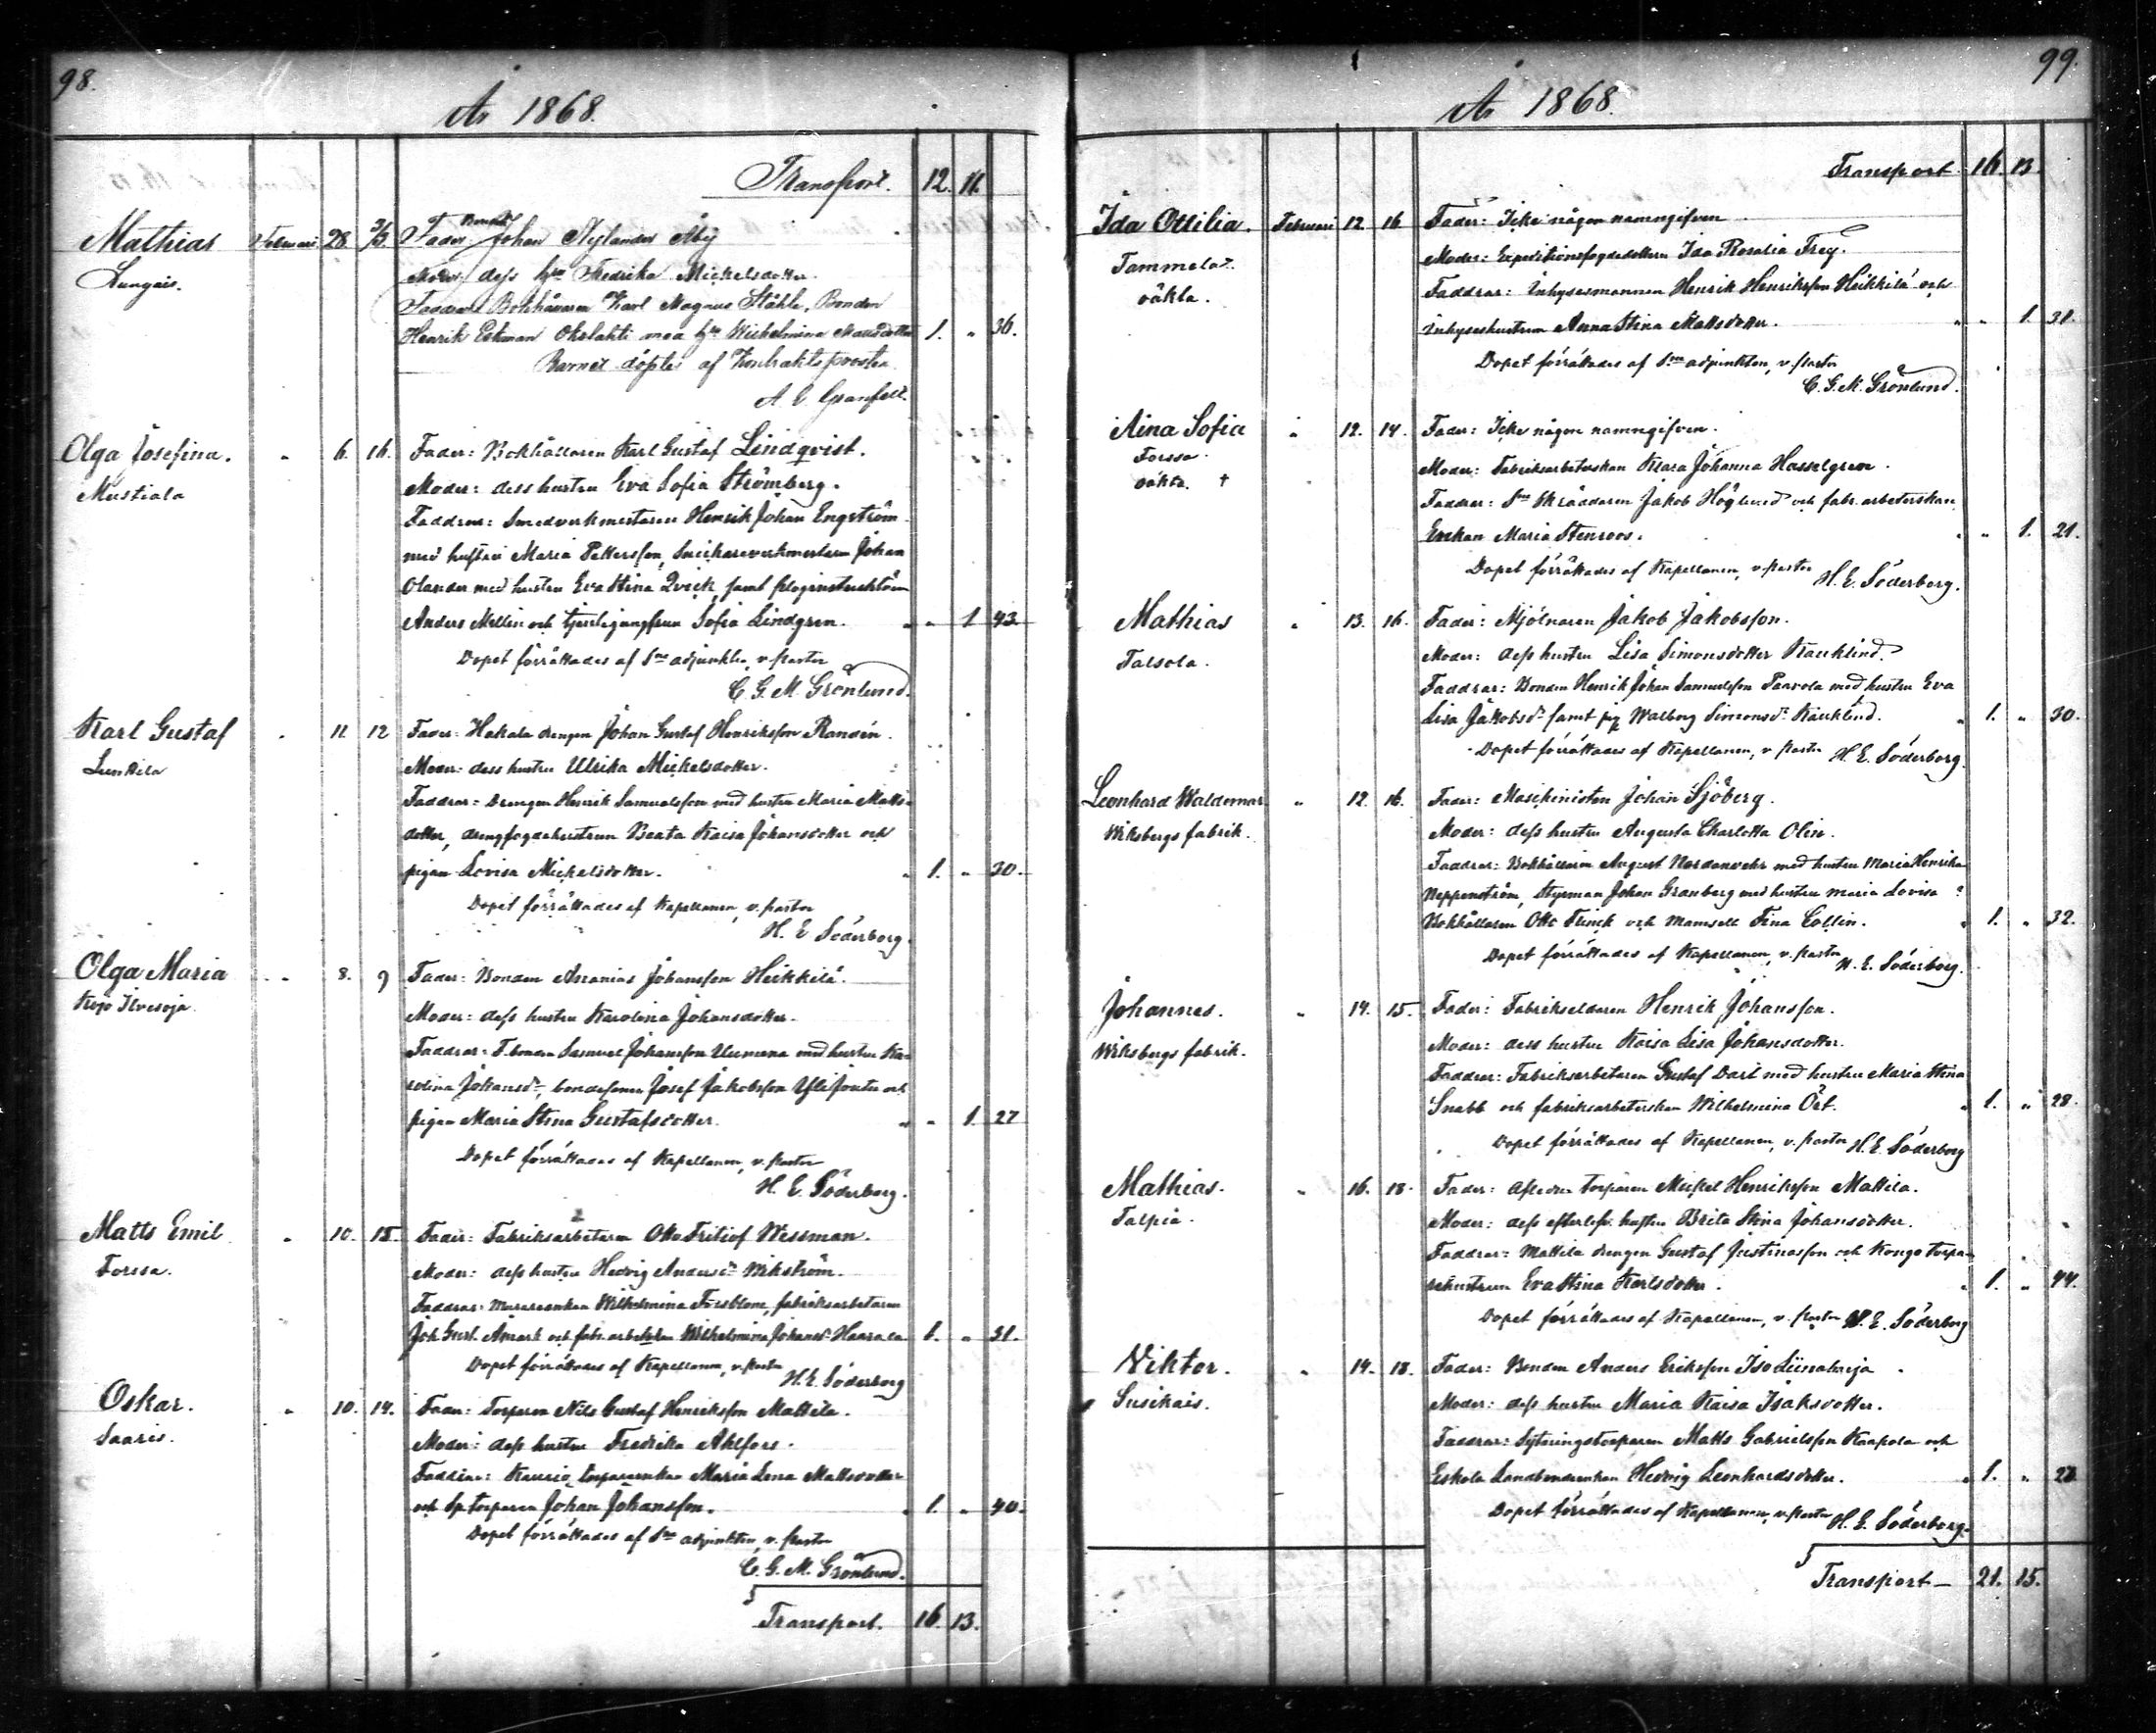 98.
År 1868.
Transport. 12. 11.
Mathias Februari 28. 3/3. Fader Bonden Johan Nylander Åby
Kungais. Moder: dess h:u Fredrika Mickelsdotter.
Faddrar Bokhållaren Karl Magnus Ståhle, Bonden
Henrik Ekman Okslahti med h:u Wilhelmina Mattsdotter 1. " 36.
Barnet döptes af Kontraktsprosten
A. E. Granfelt.
Olga Josefina. " 6. 16. Fader: Bokhållaren Karl Gustaf Lindqvist.
Mustiala Moder: dess hustru Eva Sofia Strömberg.
Faddrar: Smedverkmästaren Henrik Johan Engström
med hustru Maria Pettersson, Snickareverkmästaren Johan
Olander med hustru Eva Stina Qvick, samt ploginstruktören
Anders Mellin och tjenstejungfrun Sofia Lindgren. " 1 43.
Dopet förrättades af S:ne adjunkten, v. pastor
C. G. M. Grönlund.
Karl Gustaf " 11. 12 Fader: Hakala drengen Johan Gustaf Henriksson Randén.
Lunttila Moder: dess hustru Ulrika Mickelsdotter.
Faddrar: Drengen Henrik Samuelsson med hustru Maria Matts-
dotter, drengfogdehustrun Beata Kaisa Johansdotter och
pigan Lovisa Mickelsdotter. 1. " 30.
Dopet förrättades af Kapellanen, v. pastor
H. E. Söderborg.
Olga Maria " 8. 9 Fader: Bonden Ananias Johansson Heikkilä.
Kojo Ilvesoja Moder: dess hustru Karolina Johansdotter.
Faddrar: F. bonden Samuel Johansson Uumena med hustru Ka-
rolina Johansd:r, bondesonen Josef Jakobsson Ylijontu och
pigan Maria Stina Gustafsdotter. " 1. 27
Dopet förrättades af Kapellanen, v. pastor
H. E. Söderborg.
Matts Emil " 10. 15. Fader: Fabriksarbetaren Otto Fritiof Wessman.
Forssa. Moder: dess hustru Hedvig Andersd:r Wikström.
Faddrar: Murareenkan Wilhelmina Forsblom, fabriksarbetaren
Joh. Gust. Amark och fabr. arbeterskan Wilhelmina Johansd:r Haarala 1. " 31.
Dopet förrättades af Kapellanen, v. pastor
H. E. Söderborg
Oskar. " 10. 14. Fader: Torparen Nils Gustaf Henriksson Mattila.
Saaris. Moder: dess hustru Fredrika Ahlfors.
Faddrar: torpareenkan Maria Lena Mattsdotter
och Sp. torparen Johan Johansson. 1. " 40.
Dopet förrättades af S:ne adjunkten, v. pastor
C. G. M. Grönlund.
Transport. 16. 13.
99.
År 1868.
Transport 16. 13.
Ida Ottilia. Februari 12. 16. Fader: Icke någon namngifven
Tammela Moder: Expeditionsfogdedottern Ida Rosalia Frey.
oäkta. Faddrar: Inhysesmannen Henrik Henriksson Heikkilä och
inhyseshustrun Anna Stina Mattsdotter. " 1. 31.
Dopet förrättades af S:ne adjunkten, v. pastor
C. G. M. Grönlund.
Aina Sofia " 12. 14. Fader: Icke någon namngifven.
Forssa Moder: Fabriksarbeterskan Klara Johanna Hasselgren.
oäkta. † Faddrar: S:ne Skräddaren Jakob Höglund och fabr. arbeterskan
Enkan Maria Stenroos. " 1. 21.
Dopet förrättades af Kapellanen, v. pastor
H. E. Söderborg.
Mathias " 13. 16. Fader: Mjölnaren Jakob Jakobsson.
Talsola. Moder: dess hustru Lisa Simonsdotter Kauklind.
Faddrar: Bonden Henrik Johan Samuelsson Paavola med hustru Eva
Lisa Jakobsd:r samt pig. Walborg Simonsd:r Kauklind. 1. " 30.
Dopet förrättades af Kapellanen, v. pastor H. E. Söderborg.
Leonhard Waldemar " 12. 16. Fader: Maschinisten Johan Sjöberg.
Wiksbergs fabrik. Moder: dess hustru Augusta Charlotta Olin.
Faddrar: Bokhållaren August Nordensvehr med hustru Maria Henrika
Neppenström, Styrman Johan Granberg med hustru Maria Lovisa ?
Bokhållaren Otto Flinck och Mamsell Fina Collin. 1. " 32.
Dopet förrättades af Kapellanen, v. pastor H. E. Söderborg.
Johannes. " 14. 15. Fader: Fabrikseldaren Henrik Johansson.
Wiksbergs fabrik. Moder: dess hustru Kaisa Lisa Johansdotter.
Faddrar: Fabriksarbetaren Gustaf Dart med hustru Maria Stina
Snabb och fabriksarbeterskan Wilhelmina Ört. 1. " 28.
Dopet förrättades af Kapellanen, v. pastor H. E. Söderborg
Mathias. " 16. 18. Fader: Aflidne torparen Mickel Henriksson Mattila.
Talpia. Moder: dess efterlefv. hustru Brita Stina Johansdotter.
Faddrar: Mattila drengen Gustaf Justinasson och Kongo torpa-
rehustrun Eva Stina Karlsdotter. 1. " 44.
Dopet förrättades af Kapellanen, v. pastor H. E. Söderborg
Viktor. " 14. 18. Fader: Bonden Anders Eriksson Iso Liinaharja
Susikais. Moder: dess hustru Maria Kaisa Isaksdotter.
Faddrar: Sytningstorparen Matts Gabrielsson Kaapola och
Eskola Landbondeenkan Hedvig Leonhardsdotter. 1. " 27
Dopet förrättades af Kapellanen, v. pastor H. E. Söderborg.
Transport 21. 15.